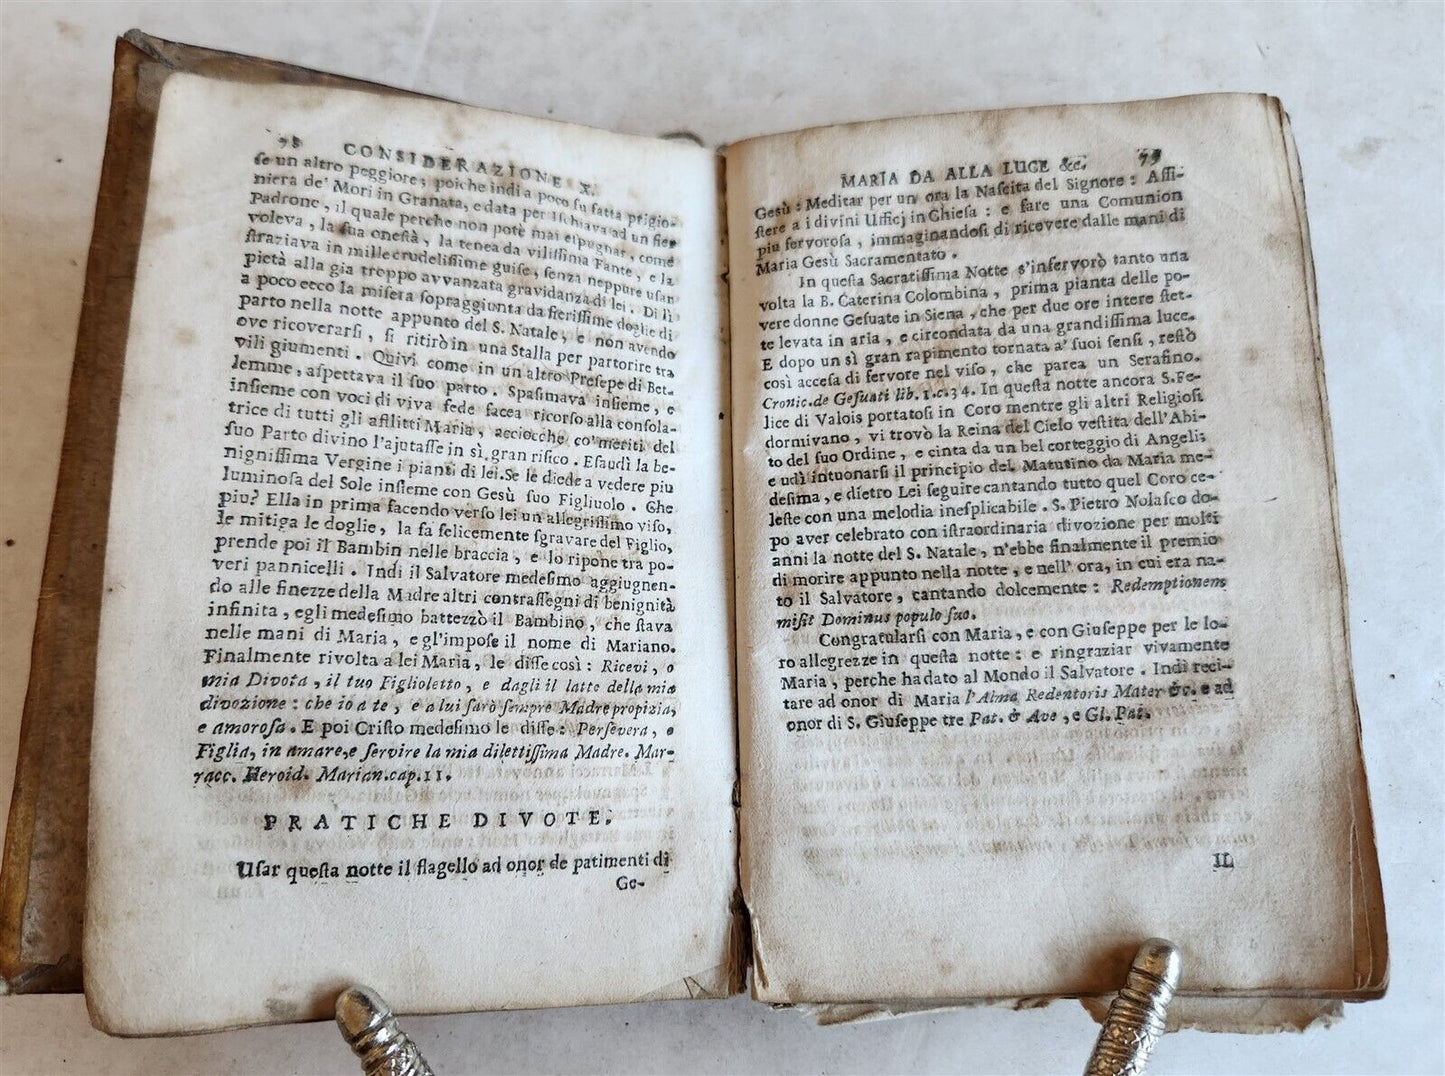 78 CONSIDERAZIONE X.
se un altro peggiore; poiche indi a poco fu fatta prigio-
niera de' Mori in Granata, e data per Ischiava ad un fier
Padrone, il quale perche non potè mai espugnar, come
voleva, la sua onestà, la tenea da vilissima Fante, e la
straziava in mille crudelissime guise, senza neppure usar
pietà alla gia troppo avvanzata gravidanza di lei. Di lì
a poco ecco la misera sopraggiunta da fierissime doglie di
parto nella notte appunto del S. Natale, e non avendo
ove ricoverarsi, si ritirò in una Stalla per partorire tra
vili giumenti. Quivi come in un altro Presepe di Bet-
lemme, aspettava il suo parto. Spasimava insieme, e
insieme con voci di viva fede facea ricorso alla consola-
trice di tutti gli afflitti Maria, acciocche co' meriti del
suo Parto divino l'ajutasse in sì gran risico. Esaudì la be-
nignissima Vergine i pianti di lei. Se le diede a vedere piu
luminosa del Sole insieme con Gesù suo Figliuolo. Che
piu? Ella in prima facendo verso lei un allegrissimo viso,
le mitiga le doglie, la fa felicemente sgravare del Figlio,
prende poi il Bambin nelle braccia, e lo ripone tra po-
veri pannicelli. Indi il Salvatore medesimo aggiugnen-
do alle finezze della Madre altri contrassegni di benignità
infinita, egli medesimo battezzò il Bambino, che stava
nelle mani di Maria, e gl'impose il nome di Mariano.
Finalmente rivolta a lei Maria, le disse così: Ricevi, o
mia Divota, il tuo Figlioletto, e dagli il latte della mia
divozione: che io a te, e a lui sarò sempre Madre propizia,
e amorosa. E poi Cristo medesimo le disse: Persevera, o
Figlia, in amare, e servire la mia dilettissima Madre. Mar-
racc. Heroid. Marian. cap. 11.
PRATICHE DIVOTE.
Usar questa notte il flagello ad onor de patimenti di
Ge-
MARIA DA ALLA LUCE &c. 79
Gesù: Meditar per un ora la Nascita del Signore: Assi-
stere a i divini Ufficj in Chiesa: e fare una Comunion
piu fervorosa, immaginandosi di ricevere dalle mani di
Maria Gesù Sacramentato.
In questa Sacratissima Notte s'infervorò tanto una
volta la B. Caterina Colombina, prima pianta delle po-
vere donne Gesuate in Siena, che per due ore intere stet-
te levata in aria, e circondata da una grandissima luce.
E dopo un sì gran rapimento tornata a' suoi sensi, restò
così accesa di fervore nel viso, che parea un Serafino.
Cronic. de Gesuati lib. 1. c. 34. In questa notte ancora S. Fe-
lice di Valois portatosi in Coro mentre gli altri Religiosi
dormivano, vi trovò la Reina del Cielo vestita dell'Abi-
to del suo Ordine, e cinta da un bel corteggio di Angeli;
e udì intuonarsi il principio del Matutino da Maria me-
desima, e dietro Lei seguire cantando tutto quel Coro ce-
leste con una melodia inesplicabile. S. Pietro Nolasco do-
po aver celebrato con istraordinaria divozione per molti
anni la notte del S. Natale, n'ebbe finalmente il premio
di morire appunto nella notte, e nell' ora, in cui era na-
to il Salvatore, cantando dolcemente: Redemptionem
misit Dominus populo suo.
Congratularsi con Maria, e con Giuseppe per le lo-
ro allegrezze in questa notte: e ringraziar vivamente
Maria, perche ha dato al Mondo il Salvatore. Indi reci-
tare ad onor di Maria l'Alma Redentoris Mater &c. e ad
onor di S. Giuseppe tre Pat. & Ave, e Gl. Pat.
IL